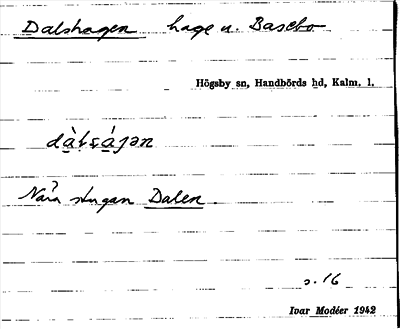 Dalshagen hage u. Basebo
Högsby sn, Handbörds hd, Kalm. l.
dàḷsáɟən
Nära stugan Dalen
s. 16
Ivar Modéer 1942